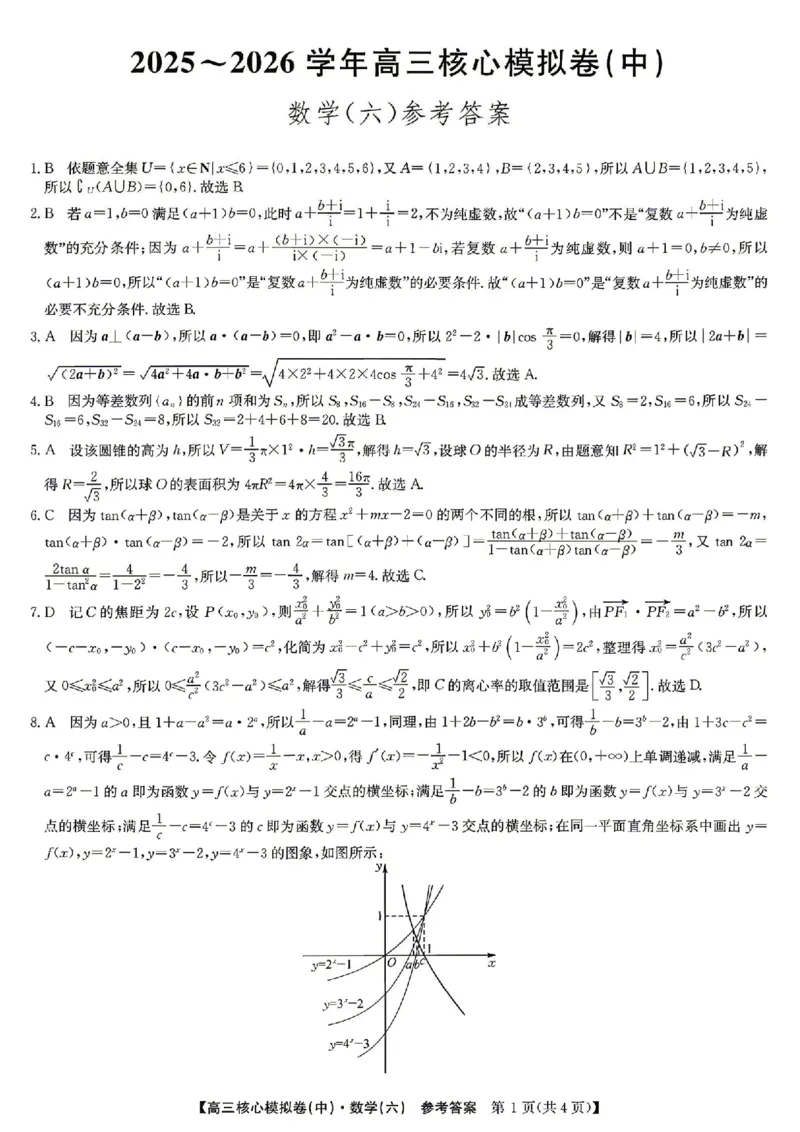 2025～2026 学年高三核心模拟卷(中)
数学(六)参考答案
1. B 依题意全集U={x∈N|x⩽6}={0,1,2,3,4,5,6},又A={1,2,3,4},B={2,3,4,5},所以A∪B={1,2,3,4,5},
所以∁U(A∪B)={0,6}. 故选 B.
2. B 若a=1,b=0满足(a+1)b=0,此时a+(b+i)/i=1+i/i=2,不为纯虚数,故“(a+1)b=0”不是“复数a+(b+i)/i为纯虚
数”的充分条件;因为a+(b+i)/i=a+((b+i)×(-i))/(i×(-i))=a+1-bi,若复数a+(b+i)/i为纯虚数,则a+1=0,b≠0,所以
(a+1)b=0,所以“(a+1)b=0”是“复数a+(b+i)/i为纯虚数”的必要条件. 故“(a+1)b=0”是“复数a+(b+i)/i为纯虚数”的
必要不充分条件. 故选 B.
3. A 因为a⊥(a-b),所以a·(a-b)=0,即a²-a·b=0,所以2²-2·|b|cos π/3=0,解得|b|=4,所以|2a+b|=
√((2a+b)²)=√(4a²+4a·b+b²)=√(4×2²+4×2×4cos π/3+4²)=4√3. 故选 A.
4. B 因为等差数列{aₙ}的前n项和为Sₙ,所以S₈,S₁₆-S₈,S₂₄-S₁₆,S₃₂-S₂₄成等差数列,又S₈=2,S₁₆=6,所以S₂₄-
S₁₆=6,S₃₂-S₂₄=8,所以S₃₂=2+4+6+8=20. 故选 B.
5. A 设该圆锥的高为h,所以V=1/3π×1²·h=√3π/3,解得h=√3,设球O的半径为R,由题意知R²=1²+(√3-R)²,解
得R=2/√3,所以球O的表面积为4πR²=4π×4/3=16π/3. 故选 A.
6. C 因为tan(α+β),tan(α-β)是关于x的方程x²+mx-2=0的两个不同的根,所以tan(α+β)+tan(α-β)=-m,
tan(α+β)·tan(α-β)=-2,所以tan 2α=tan[(α+β)+(α-β)]=(tan(α+β)+tan(α-β))/(1-tan(α+β)tan(α-β))=-m/3,又tan 2α=
2tan α/(1-tan²α)=4/(1-2²)=-4/3,所以-m/3=-4/3,解得m=4. 故选 C.
7. D 记C的焦距为2c,设P(x₀,y₀),则x₀²/a²+y₀²/b²=1(a>b>0),所以y₀²=b²(1-x₀²/a²),由PF₁·PF₂=a²-b²,所以
(-c-x₀,-y₀)·(c-x₀,-y₀)=c²,化简为x₀²-c²+y₀²=c²,所以x₀²+b²(1-x₀²/a²)=2c²,整理得x₀²=a²/c²(3c²-a²),
又0⩽x₀²⩽a²,所以0⩽a²/c²(3c²-a²)⩽a²,解得√3/3⩽c/a⩽√2/2,即C的离心率的取值范围是[√3/3,√2/2]. 故选 D.
8. A 因为a>0,且1+a-a²=a·2ᵃ,所以1/a-a=2ᵃ-1,同理,由1+2b-b²=b·3ᵇ,可得1/b-b=3ᵇ-2,由1+3c-c²=
c·4ᶜ,可得1/c-c=4ᶜ-3. 令f(x)=1/x-x,x>0,得f′(x)=-1/x²-1<0,所以f(x)在(0,+∞)上单调递减,满足1/a-
a=2ᵃ-1的a即为函数y=f(x)与y=2ˣ-1交点的横坐标;满足1/b-b=3ᵇ-2的b即为函数y=f(x)与y=3ˣ-2交
点的横坐标;满足1/c-c=4ᶜ-3的c即为函数y=f(x)与y=4ˣ-3交点的横坐标;在同一平面直角坐标系中画出y=
f(x),y=2ˣ-1,y=3ˣ-2,y=4ˣ-3的图象,如图所示:
y
1
1
y=2ˣ-1 O a b c x
y=3ˣ-2
y=4ˣ-3
【高三核心模拟卷(中)·数学(六) 参考答案 第 1 页(共 4 页)】